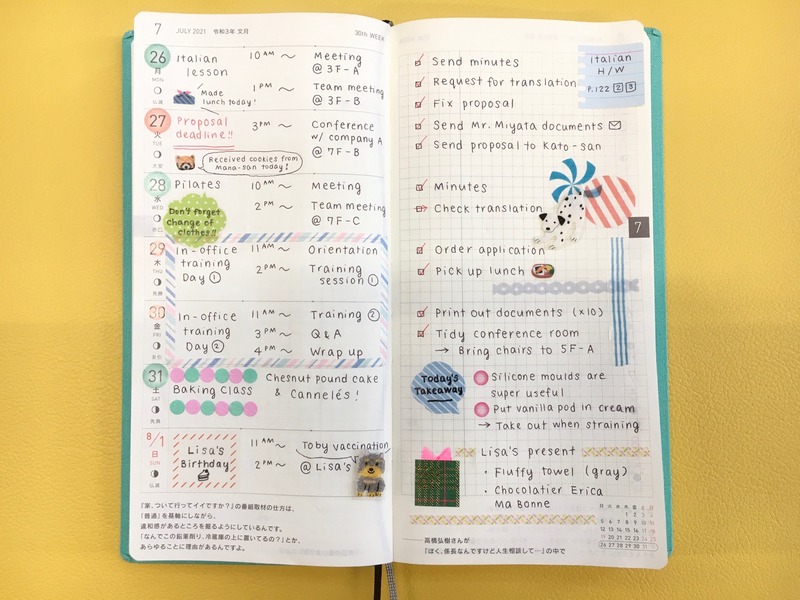 7 JULY 2021 令和3年 文月 30th WEEK
26 月 MON 仏滅
Italian lesson
Made lunch today!
10 AM ~ Meeting @ 3F-A
1 PM ~ Team meeting @ 3F-B
27 火 TUE 大安
Proposal deadline!!
Received cookies from Mana-san today!
3 PM ~ Conference w/ company A @ 7F-B
28 水 WED 赤口
Pilates
Don't forget change of clothes!!
10 AM ~ Meeting
2 PM ~ Team meeting @ 7F-C
29 木 THU 先勝
In-office training Day ①
11 AM ~ Orientation
2 PM ~ Training session ①
30 金 FRI 友引
In-office training Day ②
11 AM ~ Training ②
3 PM ~ Q&A
4 PM ~ Wrap up
31 土 SAT 先負
Baking Class
Chesnut pound cake & Cannelés!
8/1 日 SUN 仏滅
Lisa's Birthday
11 AM ~ Toby vaccination
2 PM ~ @ Lisa's
『家、ついて行ってイイですか？』の番組取材の仕方は、
「普通」を基軸にしながら、
違和感があるところを掘るようにしているんです。
「なんでこの鉛筆削り、冷蔵庫の上に置いてるの？」とか、
あらゆることに理由があるんですよ。
Send minutes
Request for translation
Fix proposal
Send Mr. Miyata documents
Send proposal to Kato-san
Italian H/W
P.122 2 3
Minutes
Check translation
7
Order application
Pick up lunch
Print out documents (x10)
Tidy conference room
→ Bring chairs to 5F-A
Today's Takeaway
Silicone moulds are super useful
Put vanilla pod in cream
→ Take out when straining
Lisa's present
• Fluffy towel (gray)
• Chocolatier Erica Ma Bonne
月 火 水 木 金 土 日
1 2 3 4
5 6 7 8 9 10 11
12 13 14 15 16 17 18
19 20 21 22 23 24 25
26 27 28 29 30 31
——高橋弘樹さんが
『ぼく、係長なんですけど人生相談して…』の中で